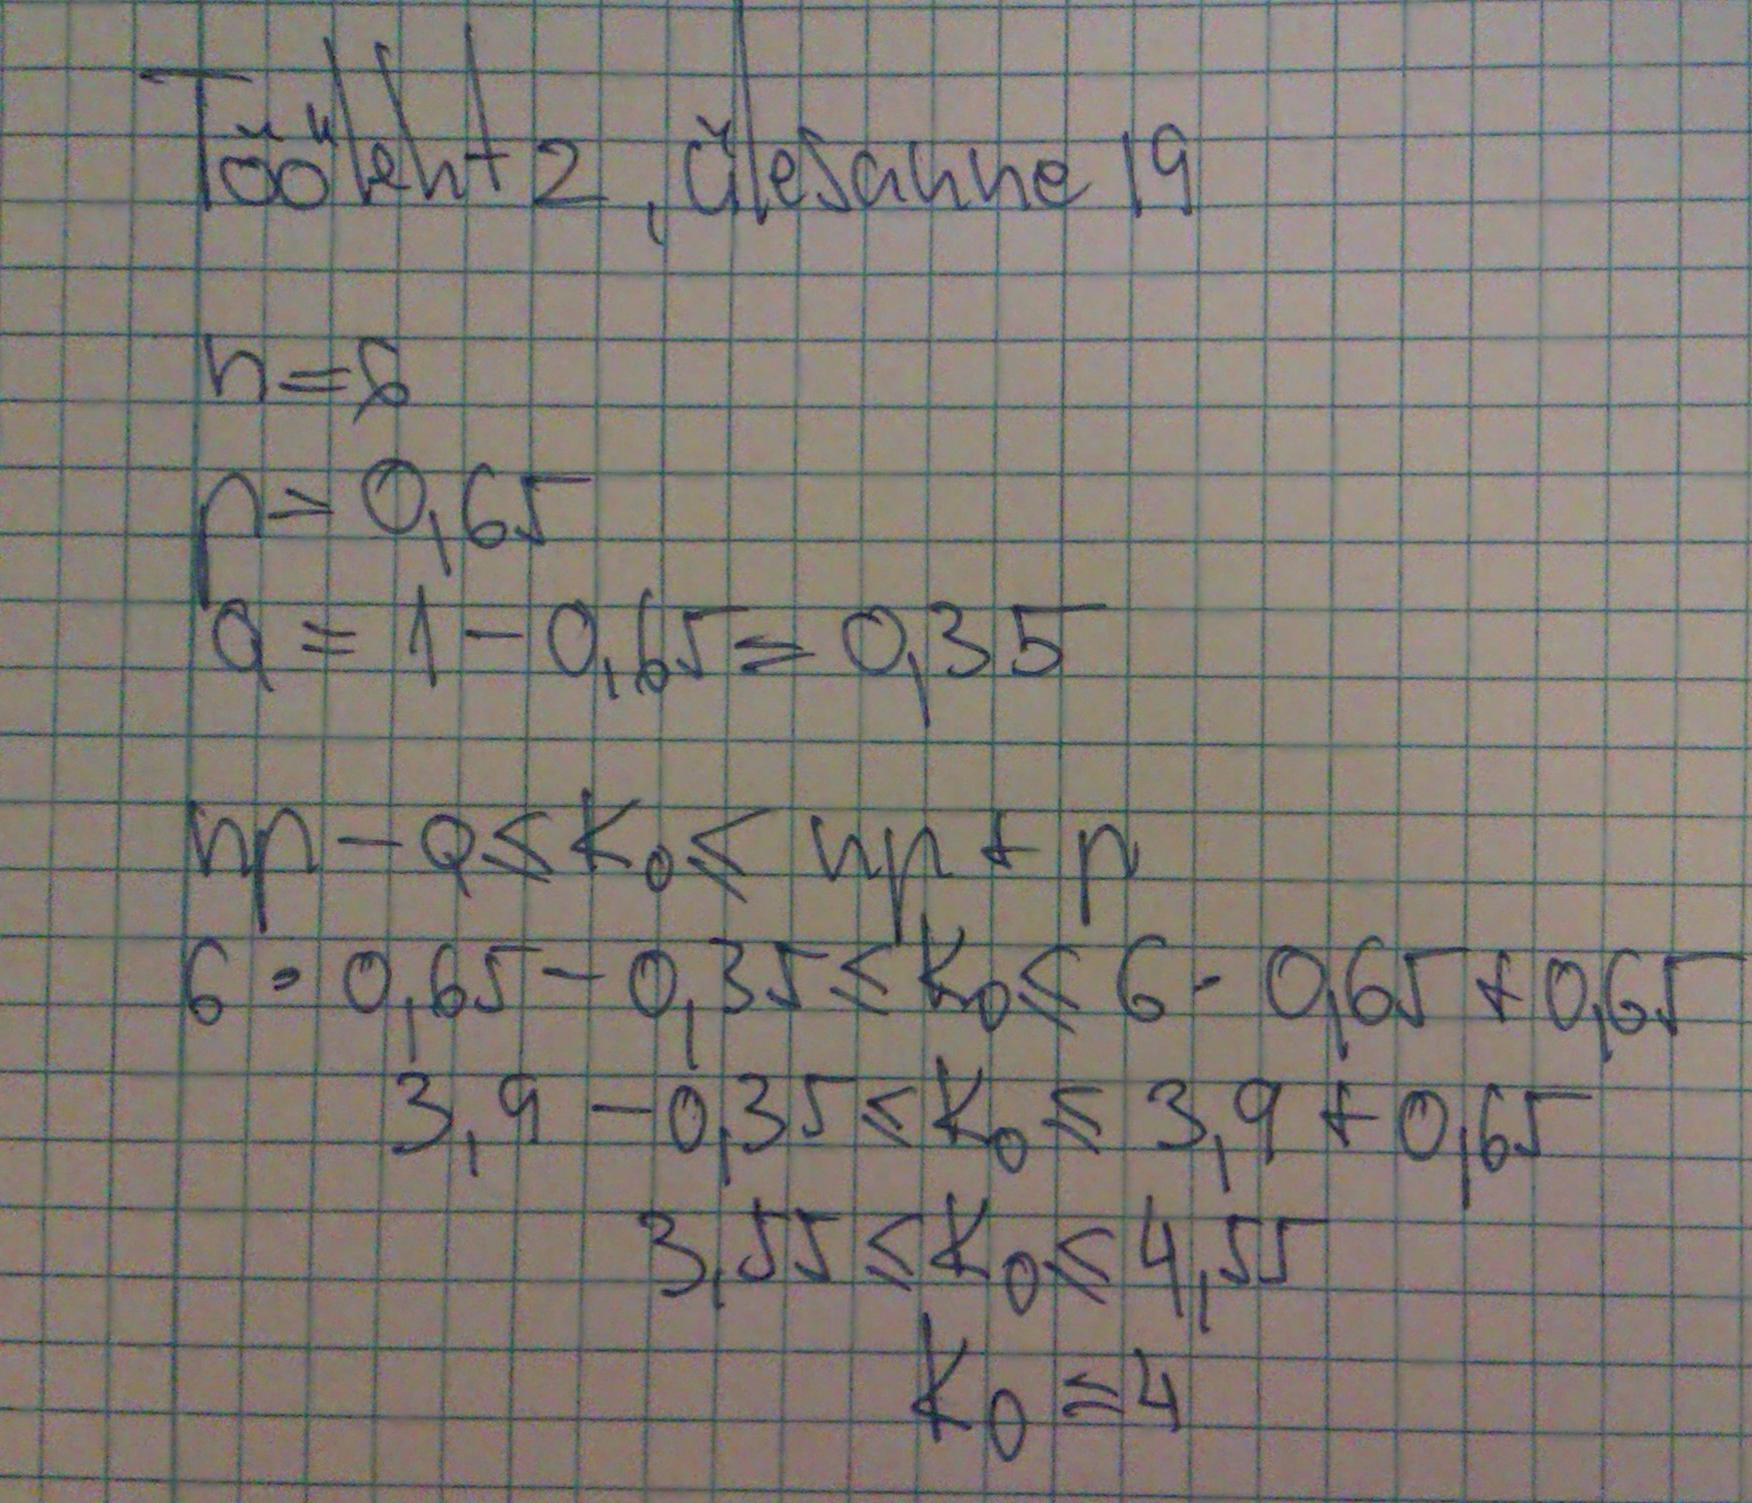 Tööleht 2, ülesanne 19
n=8
p=0,65
q=1-0,65=0,35
np-q≤k₀≤np+p
6·0,65-0,35≤k₀≤6·0,65+0,65
3,9-0,35≤k₀≤3,9+0,65
3,55≤k₀≤4,55
k₀=4